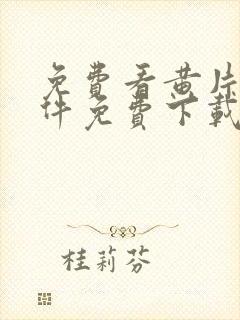 免费看黄片
件免费下载
桂莉芬